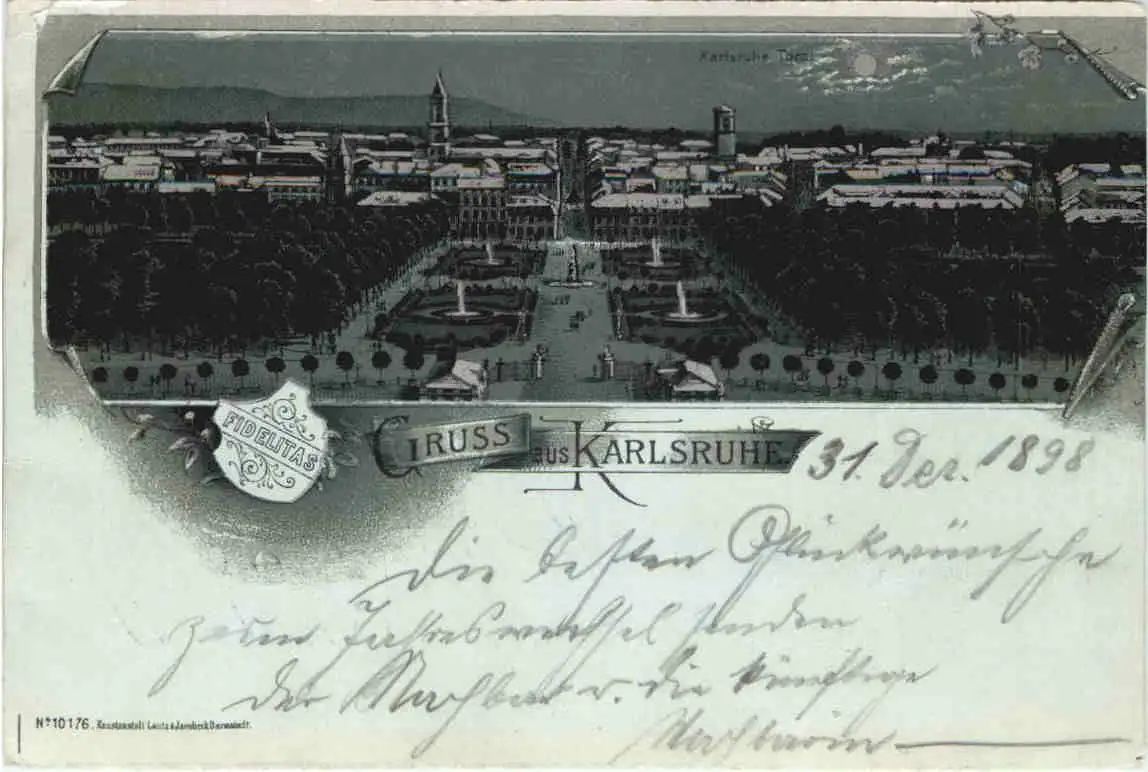 Karlsruhe Total
FIDELITAS
GRUSS
aus KARLSRUHE.
31. Dez. 1898
Die besten Glückwünsche
zum Jahreswechsel senden
der Nachbar u. die künftige
Nachbarin
No 10176. Kunstanstalt Lautz & Jsenbeck Darmstadt.